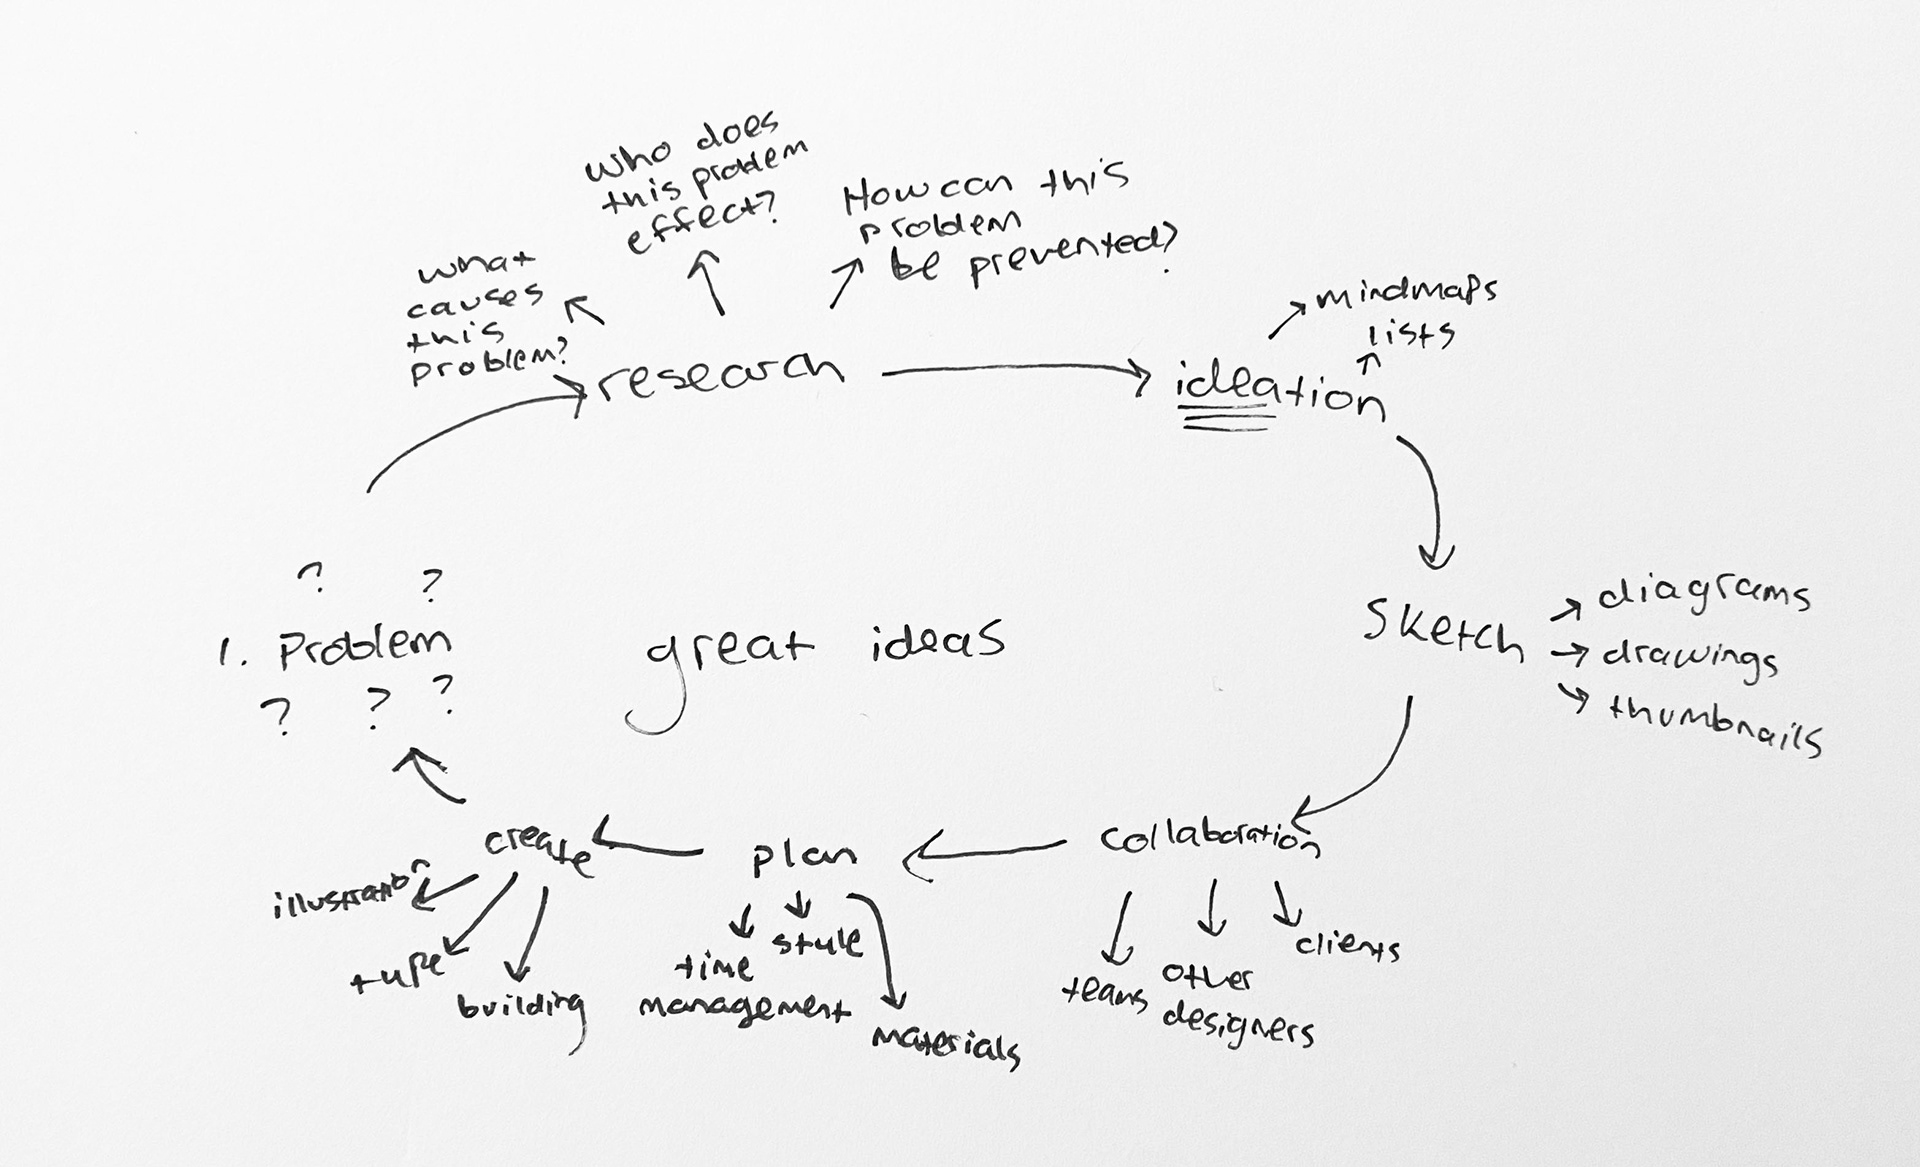 who does
this problem
effect?
How can this
problem
be prevented?
what
causes
this
problem?
mindmaps
lists
research
ideation
? ?
1. Problem
? ? ?
great ideas
Sketch
diagrams
drawings
thumbnails
create
plan
collaboration
illustration
type
building
time
management
style
materials
teams
other
designers
clients